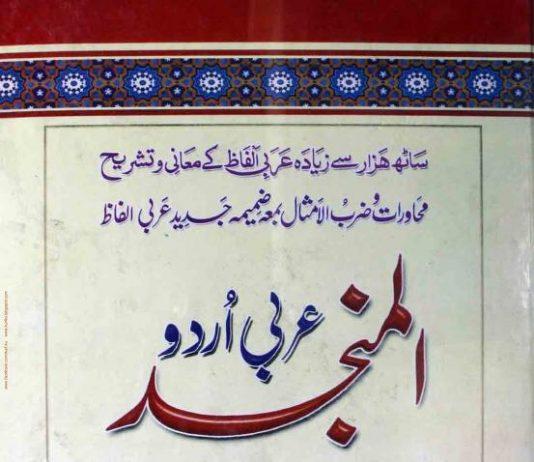 ساٹھ ہزار سے زیادہ عربی الفاظ کے معانی و تشریح
محاورات و ضربُ الامثال بمعہ ضمیمہ جدید عربی الفاظ
المنجد
عربی اُردو